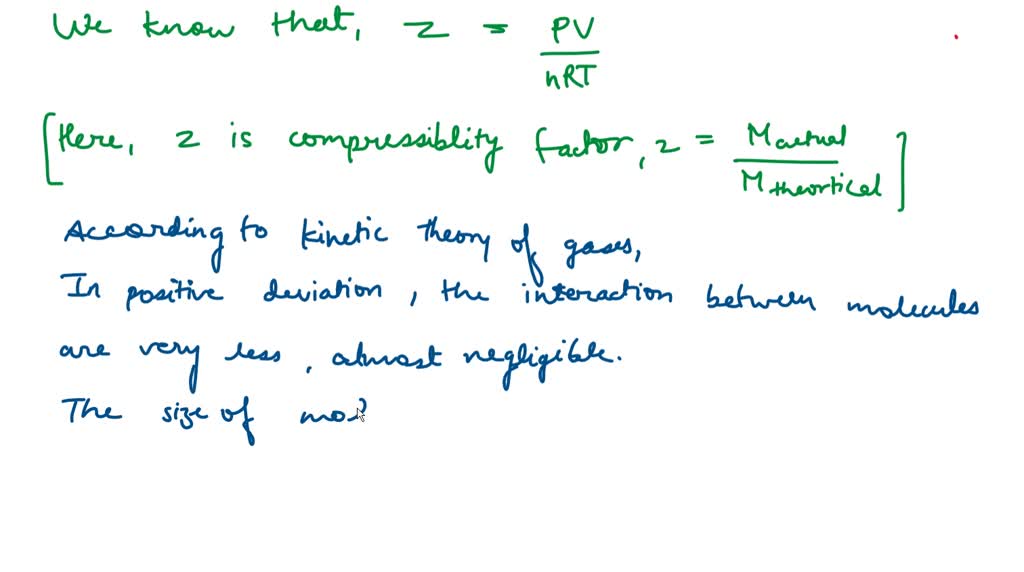 We know that, z = PV / nRT
[Here, z is compressiblity factor, z = M actual / M theortical]
According to kinetic theory of gases,
In positive deviation, the interaction between molecules
are very less, almost negligible.
The size of mo